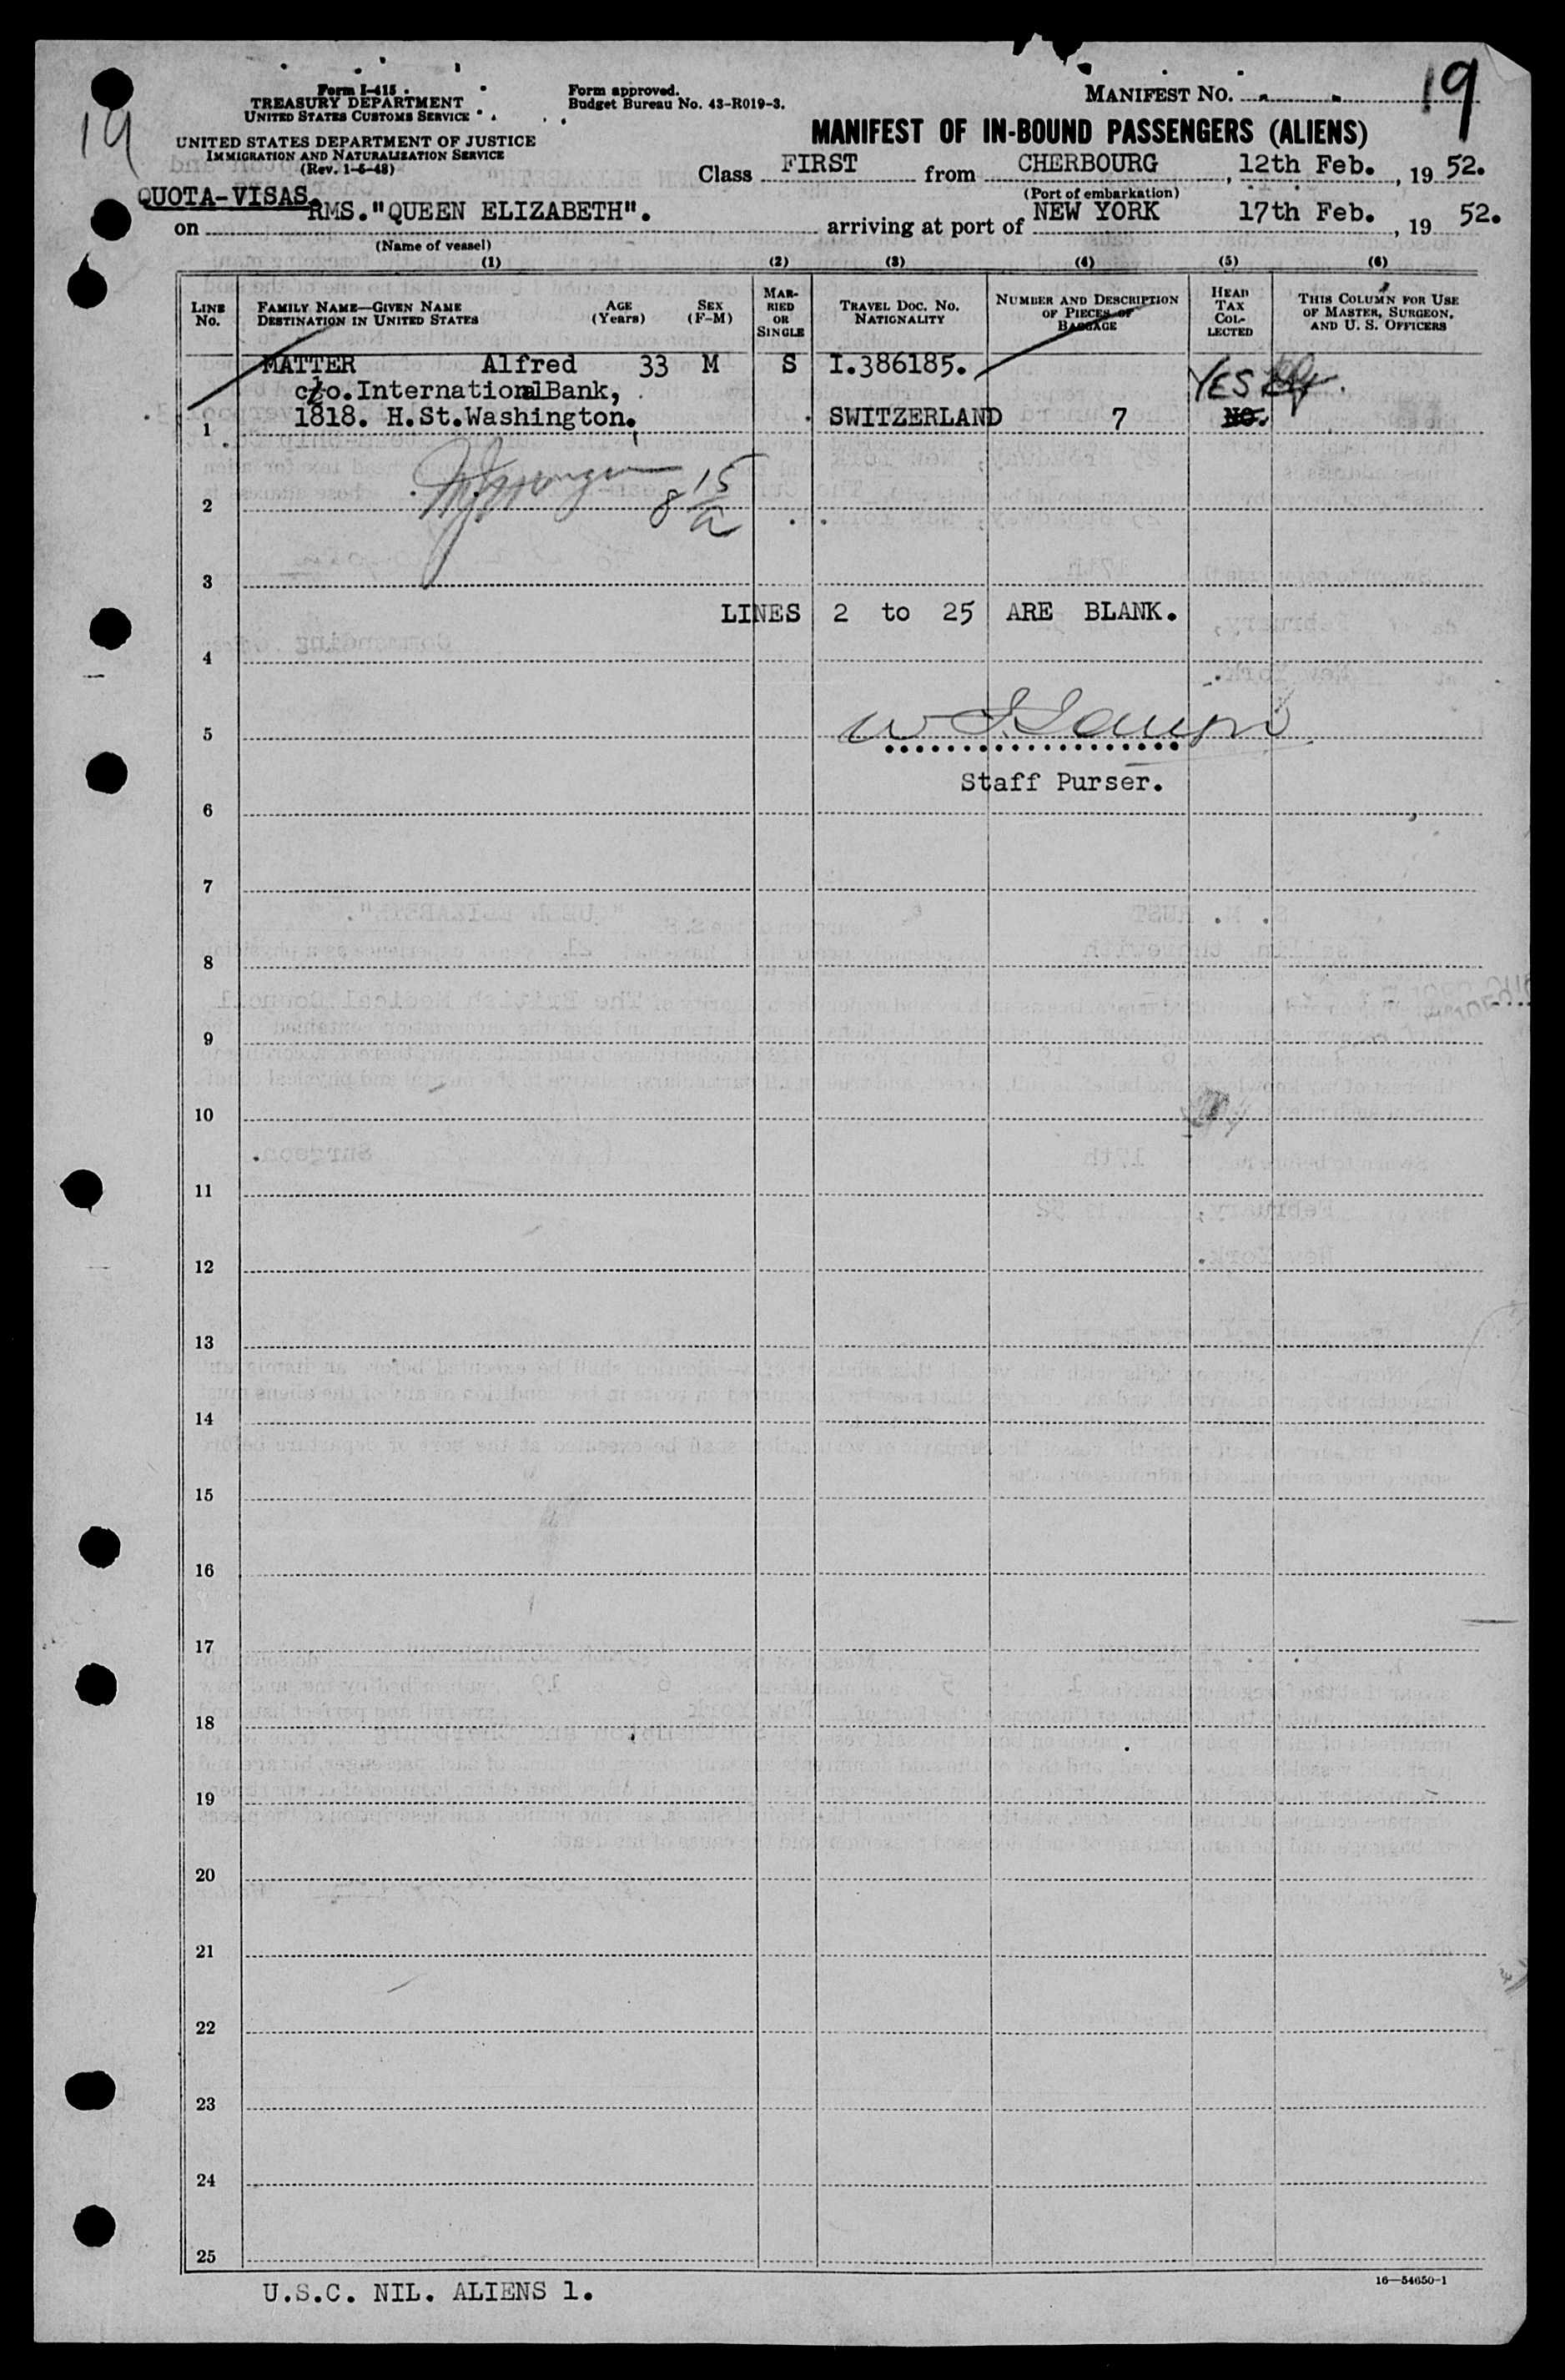 Form I-415
TREASURY DEPARTMENT
UNITED STATES CUSTOMS SERVICE
UNITED STATES DEPARTMENT OF JUSTICE
IMMIGRATION AND NATURALIZATION SERVICE
(Rev. 1-5-48)
Form approved.
Budget Bureau No. 43-R019-3.
MANIFEST NO. 19
19
MANIFEST OF IN-BOUND PASSENGERS (ALIENS)
Class FIRST from CHERBOURG, 12th Feb., 19 52.
(Port of embarkation)
QUOTA-VISAS.
on RMS."QUEEN ELIZABETH". arriving at port of NEW YORK 17th Feb., 19 52.
(Name of vessel)
(1) (2) (3) (4) (5) (6)
LINE No. FAMILY NAME—GIVEN NAME DESTINATION IN UNITED STATES AGE (Years) SEX (F-M) MARRIED OR SINGLE TRAVEL DOC. NO. NATIONALITY NUMBER AND DESCRIPTION OF PIECES OF BAGGAGE HEAD TAX COLLECTED THIS COLUMN FOR USE OF MASTER, SURGEON, AND U. S. OFFICERS
MATTER Alfred 33 M S I.386185.
c/o.International Bank, YES
1 1818. H.St.Washington. SWITZERLAND 7 NO.
8 15
2
3
LINES 2 to 25 ARE BLANK.
4
5
Staff Purser.
6
7
8
9
10
11
12
13
14
15
16
17
18
19
20
21
22
23
24
25
U.S.C. NIL. ALIENS 1.
16—54650-1